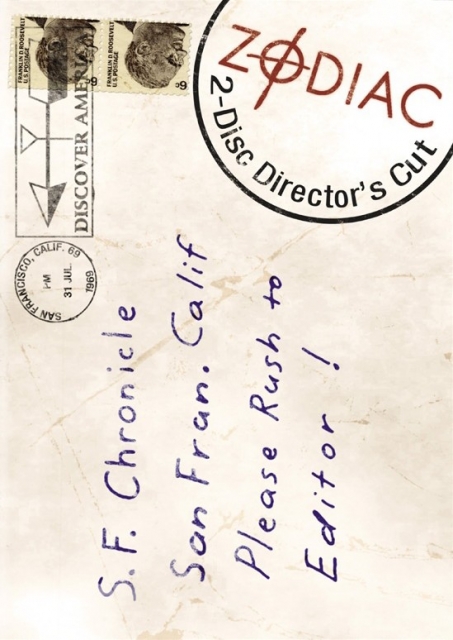 ZODIAC
2-Disc Director's Cut
FRANKLIN D. ROOSEVELT
U.S. POSTAGE
6¢
FRANKLIN D. ROOSEVELT
U.S. POSTAGE
6¢
DISCOVER AMERICA
SAN FRANCISCO, CALIF. 69
PM
31 JUL
1969
S.F. Chronicle
San Fran. Calif
Please Rush to
Editor !